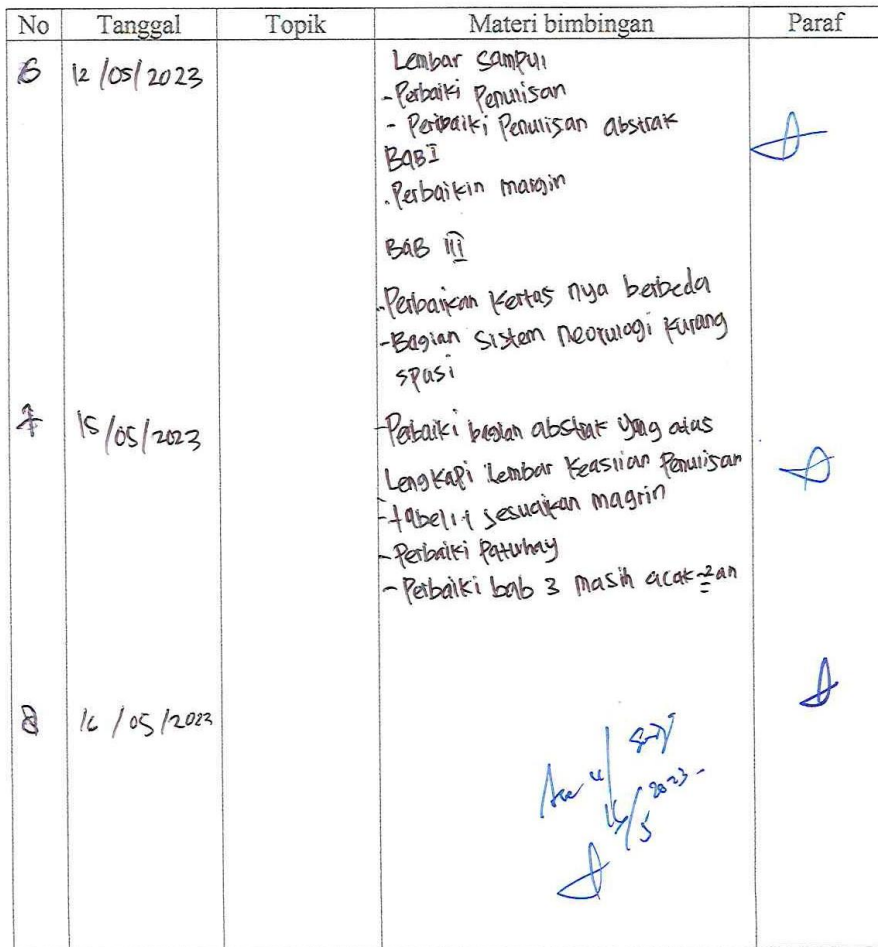 No Tanggal Topik Materi bimbingan Paraf
6 12/05/2023 Lembar sampul
- Perbaiki Penulisan
- Perbaiki Penulisan abstrak
BAB I
. Perbaikin margin
BAB III
- Perbaikan Kertas nya berbeda
- Bagian Sistem neorulogi kurang
spasi
7 15/05/2023 - Perbaiki bagian abstrak yang atas
Lengkapi lembar Keaslian Penulisan
- tabel 1.1 sesuaikan magrin
- Perbaiki
- Perbaiki bab 3 masih acak-2an
8 16/05/2023
Acc u/
16/5 2023-